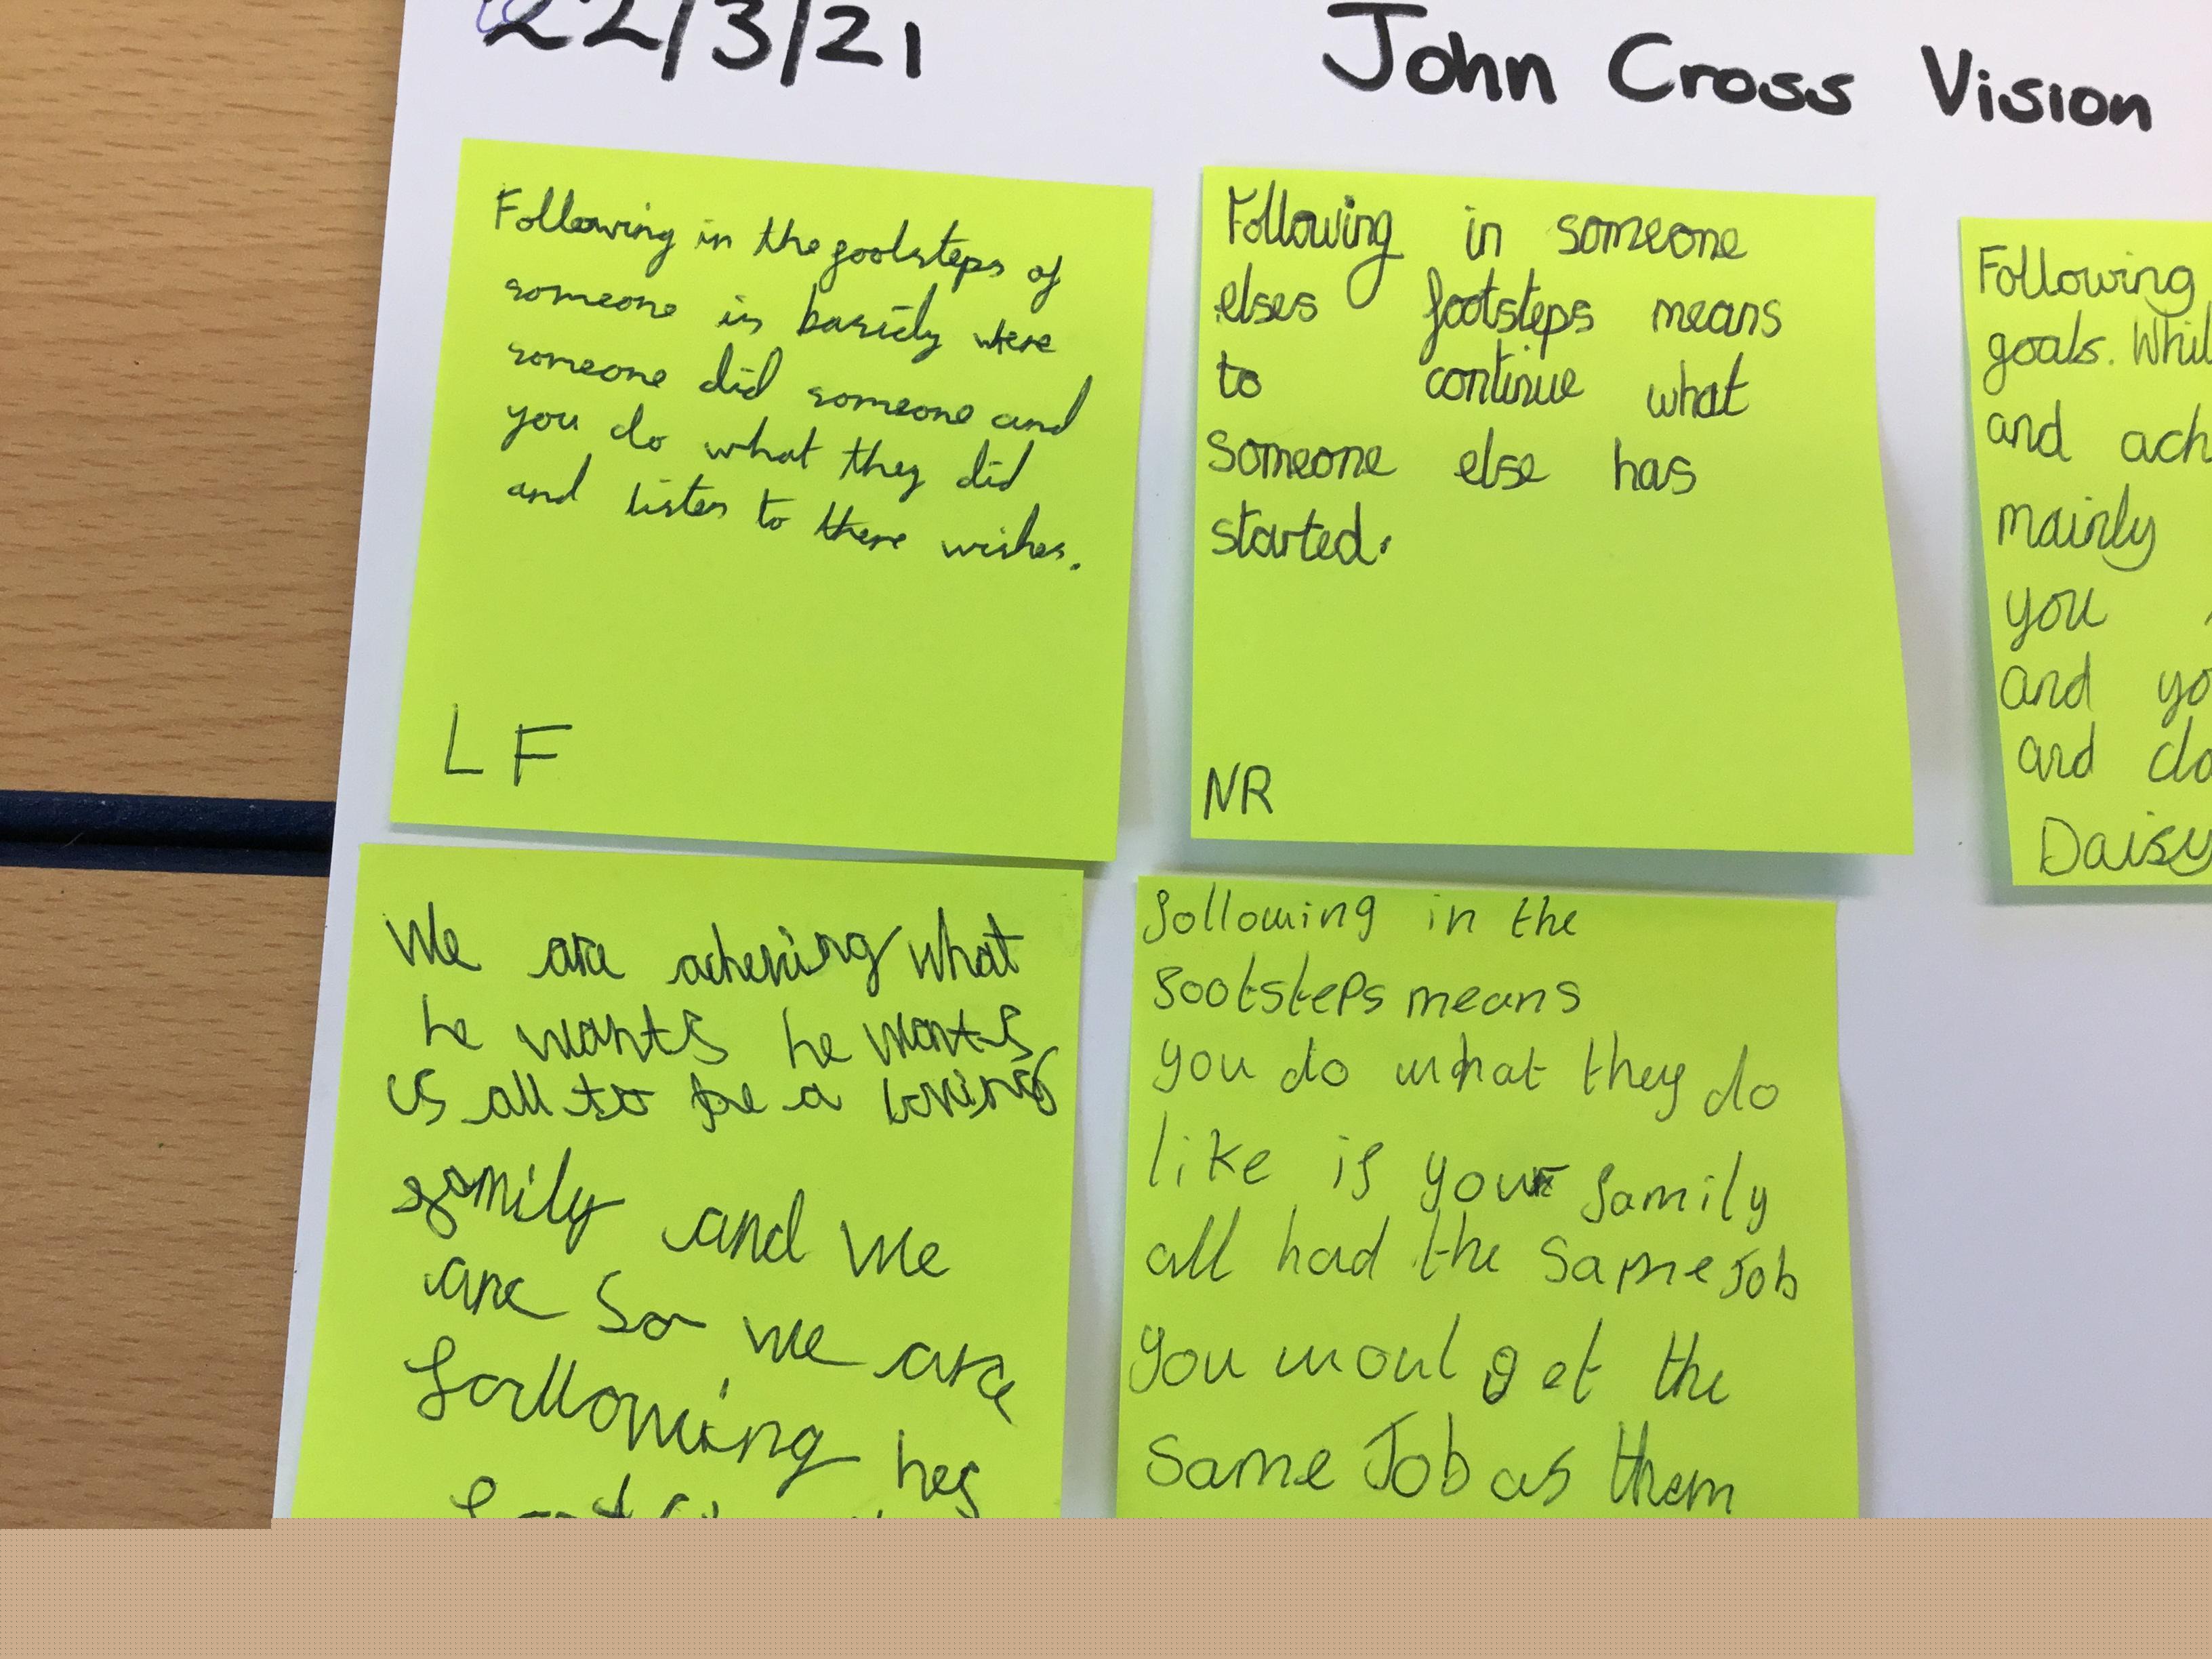 22/3/21
John Cross Vision
Following in the footsteps of
someone is basicly were
someone did someone and
you do what they did
and listen to there wishes.
L F
Following in someone
elses footsteps means
to continue what
someone else has
started.
NR
Following
goals. Whil
and ach
mainly
you
and yo
and do
Daisy
We are acheving what
he wants he wants
us all to be a loving
family and we
are So we are
following hes
following in the
footsteps means
you do what they do
like if your family
all had the same Job
you woul get the
same Job as them